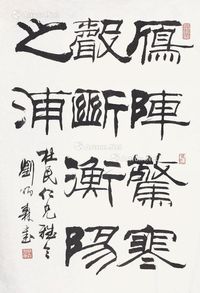 鴈陣驚寒
聲斷衡陽
之浦
杜民仁兄雅
劉炳森書